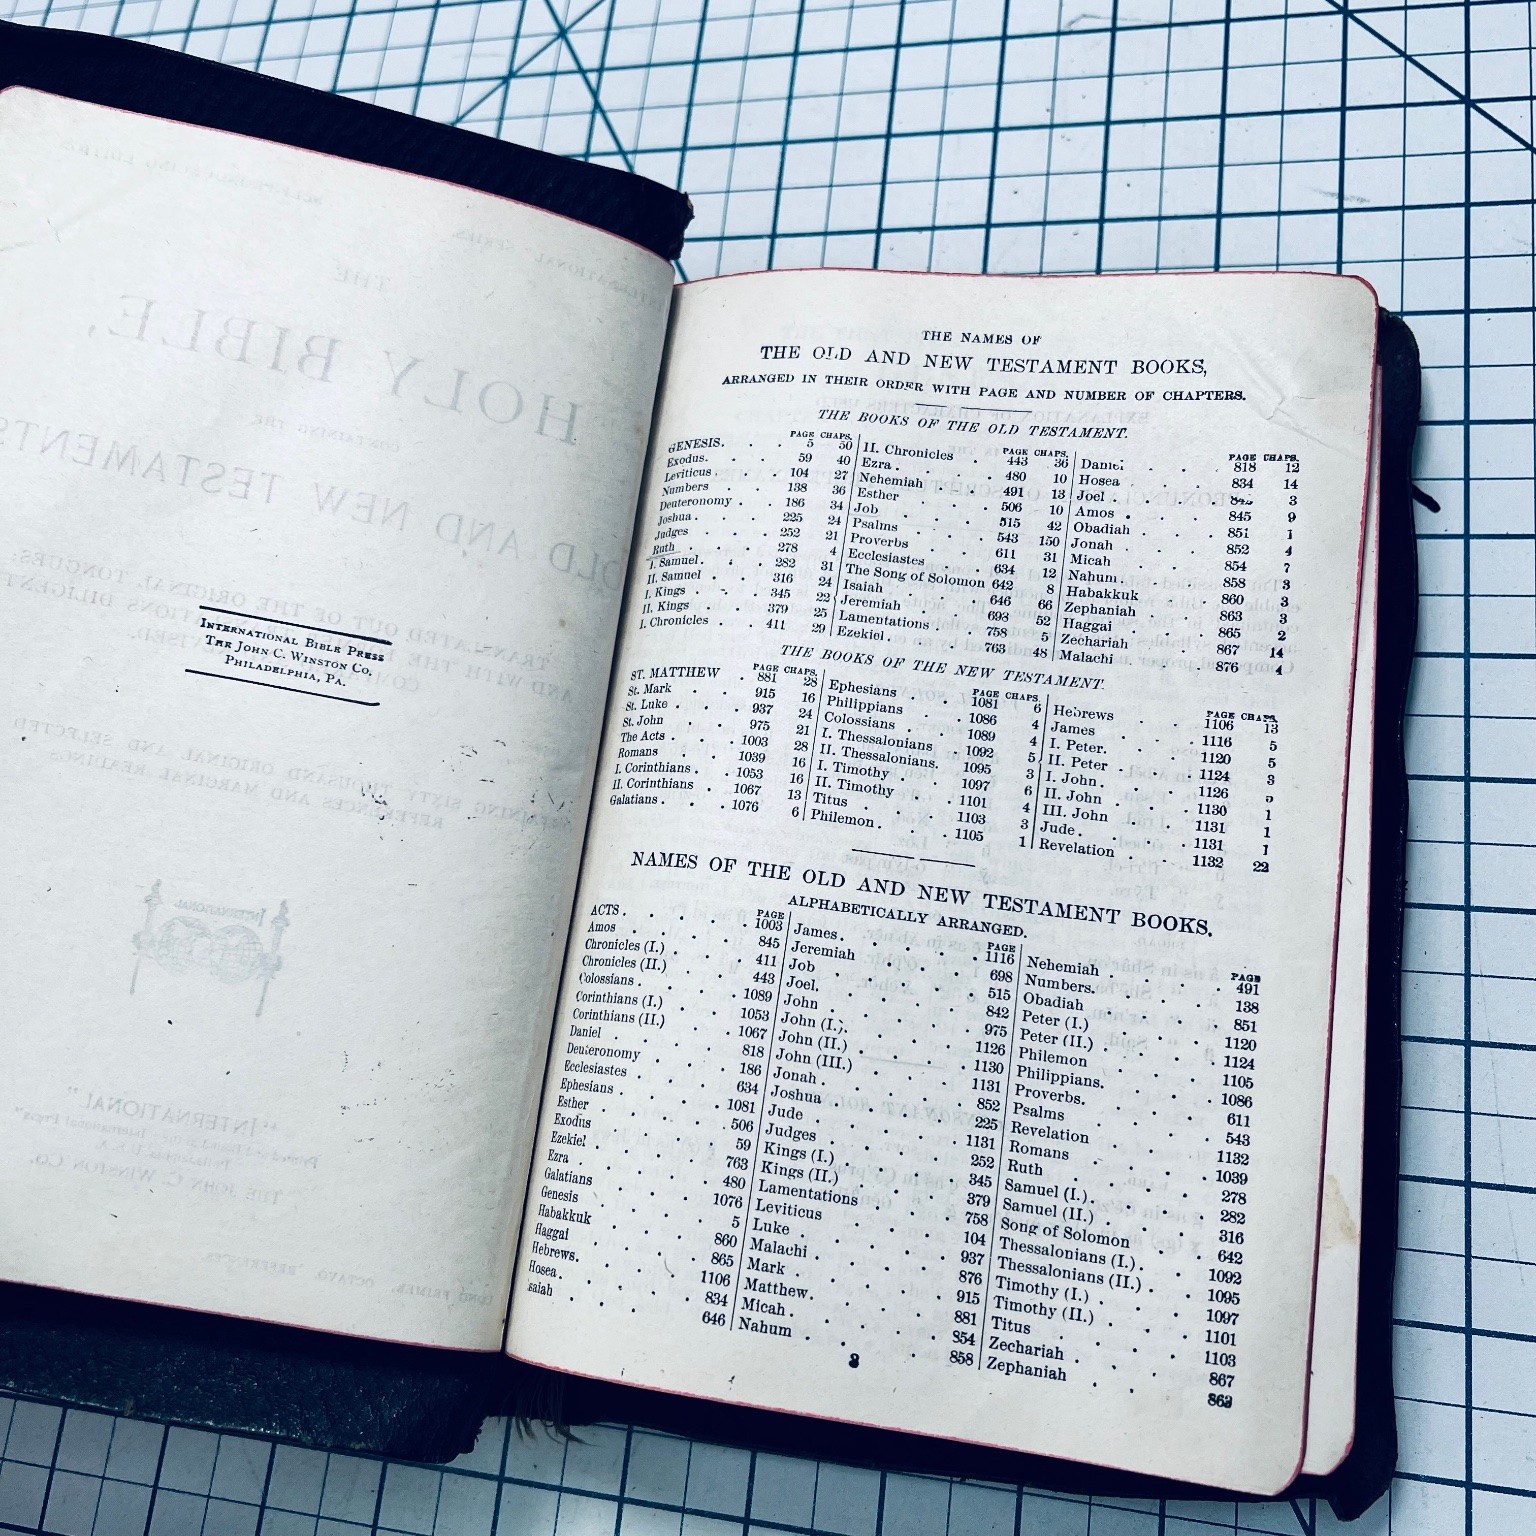 INTERNATIONAL BIBLE PRESS
THE JOHN C. WINSTON CO.
PHILADELPHIA, PA.
THE NAMES OF
THE OLD AND NEW TESTAMENT BOOKS,
ARRANGED IN THEIR ORDER WITH PAGE AND NUMBER OF CHAPTERS.
THE BOOKS OF THE OLD TESTAMENT.
PAGE CHAPS.
GENESIS. . . . 5 50
Exodus. . . 59 40
Leviticus . . . 104 27
Numbers . . 138 36
Deuteronomy . . 186 34
Joshua . . . 225 24
Judges . . . 252 21
Ruth . . . 278 4
I. Samuel . . . 282 31
II. Samuel . . 316 24
I. Kings . . . 345 22
II. Kings . . 379 25
I. Chronicles . . 411 29
PAGE CHAPS.
II. Chronicles . 443 36
Ezra . . . 480 10
Nehemiah . . 491 13
Esther . . . 506 10
Job . . . 515 42
Psalms . . 543 150
Proverbs . . 611 31
Ecclesiastes . . 634 12
The Song of Solomon 642 8
Isaiah . . . 646 66
Jeremiah . . 698 52
Lamentations . . 758 5
Ezekiel . . . 763 48
PAGE CHAPS.
Daniel . . 818 12
Hosea . . . 834 14
Joel . . . 3
Amos . . . 845 9
Obadiah . . 851 1
Jonah . . . 852 4
Micah . . . 854 7
Nahum . . . 858 3
Habakkuk . . 860 3
Zephaniah . . 863 3
Haggai . . . 865 2
Zechariah . . 867 14
Malachi . . . 876 4
THE BOOKS OF THE NEW TESTAMENT.
PAGE CHAPS.
ST. MATTHEW . 881 28
St. Mark . . 915 16
St. Luke . . . 937 24
St. John . . 975 21
The Acts . . . 1003 28
Romans . . 1039 16
I. Corinthians . . 1053 16
II. Corinthians . 1067 13
Galatians . . . 1076 6
PAGE CHAPS.
Ephesians . . 1081 6
Philippians . . 1086 4
Colossians . . 1089 4
I. Thessalonians . 1092 5
II. Thessalonians. 1095 3
I. Timothy . . 1097 6
II. Timothy . . 1101 4
Titus . . . 1103 3
Philemon . . . 1105 1
PAGE CHAPS.
Hebrews . . 1106 13
James . . . 1116 5
I. Peter . . . 1120 5
II. Peter . . 1124 3
I. John . . . 1126
II. John . . 1130 1
III. John . . 1131 1
Jude . . . 1131 1
Revelation . . 1132 22
NAMES OF THE OLD AND NEW TESTAMENT BOOKS.
ALPHABETICALLY ARRANGED.
PAGE
ACTS . . . . 1003
Amos . . . . 845
Chronicles (I.) . . . 411
Chronicles (II.) . . . 443
Colossians . . . . 1089
Corinthians (I.) . . . 1053
Corinthians (II.) . . . 1067
Daniel . . . . 818
Deuteronomy . . . 186
Ecclesiastes . . . 634
Ephesians . . . . 1081
Esther . . . . 506
Exodus . . . . 59
Ezekiel . . . . 763
Ezra . . . . 480
Galatians . . . . 1076
Genesis . . . . 5
Habakkuk . . . . 860
Haggai . . . . 865
Hebrews. . . . 1106
Hosea . . . . 834
Isaiah . . . . 646
PAGE
James. . . . . 1116
Jeremiah . . . . 698
Job . . . . 515
Joel. . . . . 842
John . . . . 975
John (I.). . . . 1126
John (II.) . . . . 1130
John (III.) . . . . 1131
Jonah . . . . 852
Joshua . . . . 225
Jude . . . . 1131
Judges . . . . 252
Kings (I.) . . . . 345
Kings (II.) . . . . 379
Lamentations . . . 758
Leviticus . . . . 104
Luke . . . . 937
Malachi . . . . 876
Mark . . . . 915
Matthew. . . . 881
Micah . . . . 854
Nahum . . . . 858
PAGE
Nehemiah . . . . 491
Numbers. . . . 138
Obadiah . . . . 851
Peter (I.) . . . . 1120
Peter (II.) . . . . 1124
Philemon . . . . 1105
Philippians. . . . 1086
Proverbs. . . . 611
Psalms . . . . 543
Revelation . . . . 1132
Romans . . . . 1039
Ruth . . . . 278
Samuel (I.) . . . . 282
Samuel (II.) . . . . 316
Song of Solomon . . 642
Thessalonians (I.) . . 1092
Thessalonians (II.) . . 1095
Timothy (I.) . . . 1097
Timothy (II.) . . . 1101
Titus . . . . 1103
Zechariah . . . . 867
Zephaniah . . . . 863
3